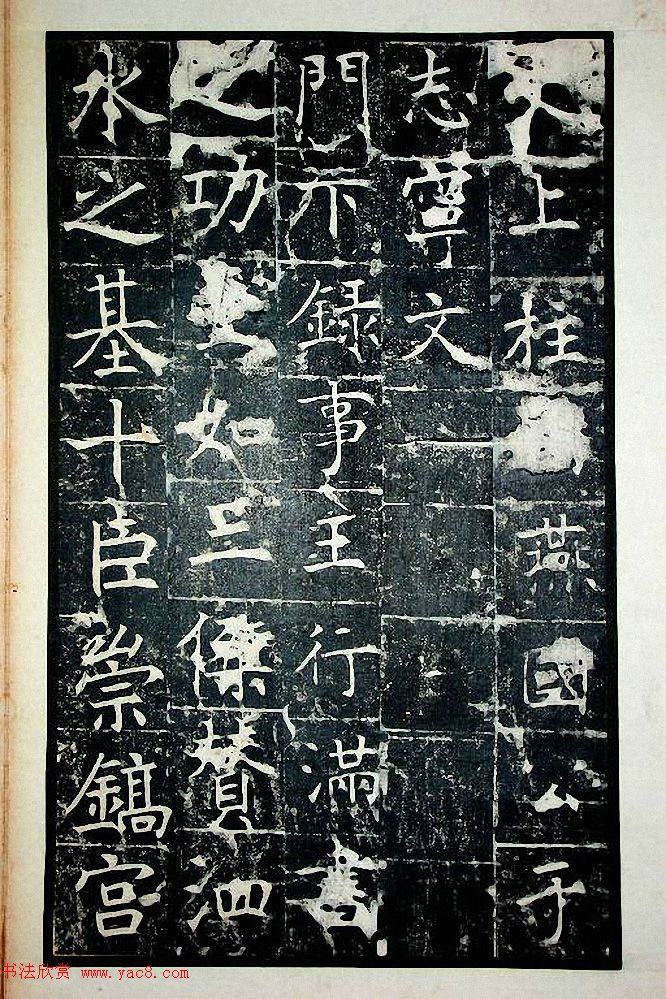 大上柱國燕國公于
志寧文
門下錄事王行滿書
之功喾如三傑贊泗
水之基十臣崇鎬宮
书法欣赏 www.yac8.com